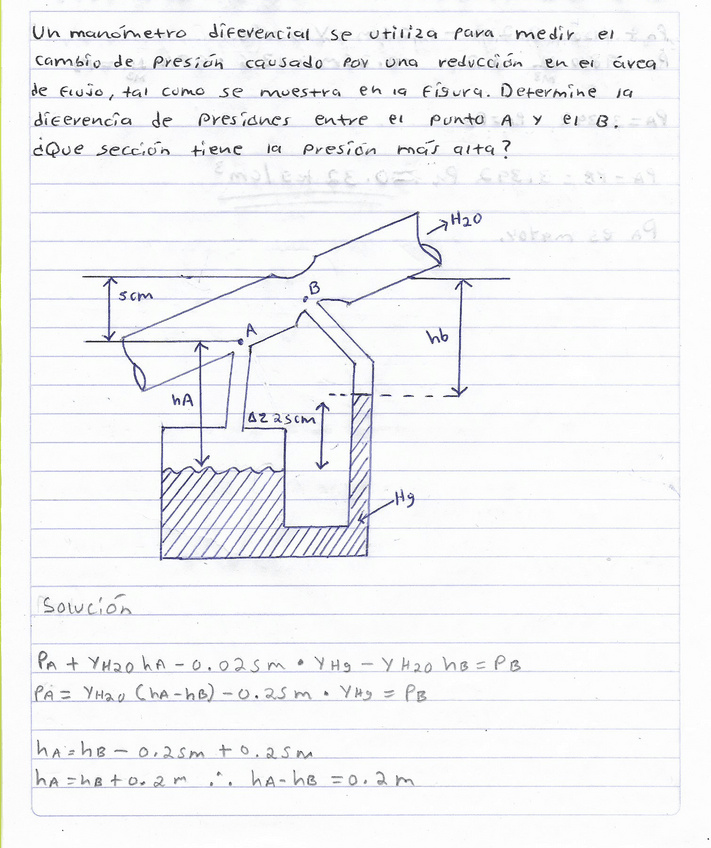 Un manómetro diferencial se utiliza para medir el
cambio de Presión causado por una reducción en el área
de flujo, tal como se muestra en la figura. Determine la
diferencia de Presiones entre el punto A y el B.
¿Que sección tiene la Presión más alta?
H2O
5cm
B
A
hb
hA
ΔZ 25cm
Hg
Solución
PA + γH2O hA - 0.025m • γHg - γH2O hB = PB
PA = γH2O (hA-hB) - 0.25m • γHg = PB
hA = hB - 0.25m + 0.25m
hA = hB + 0.2 m ∴ hA-hB = 0.2 m